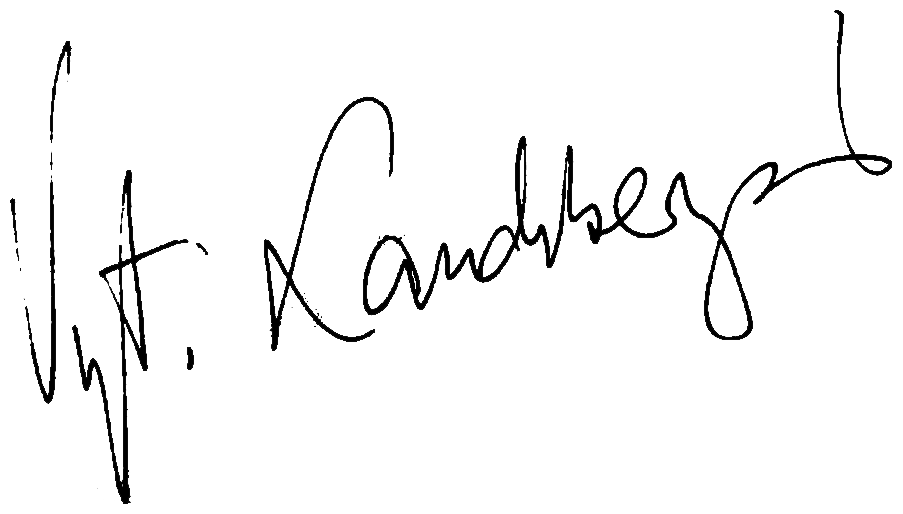 Vyt. Landsberg